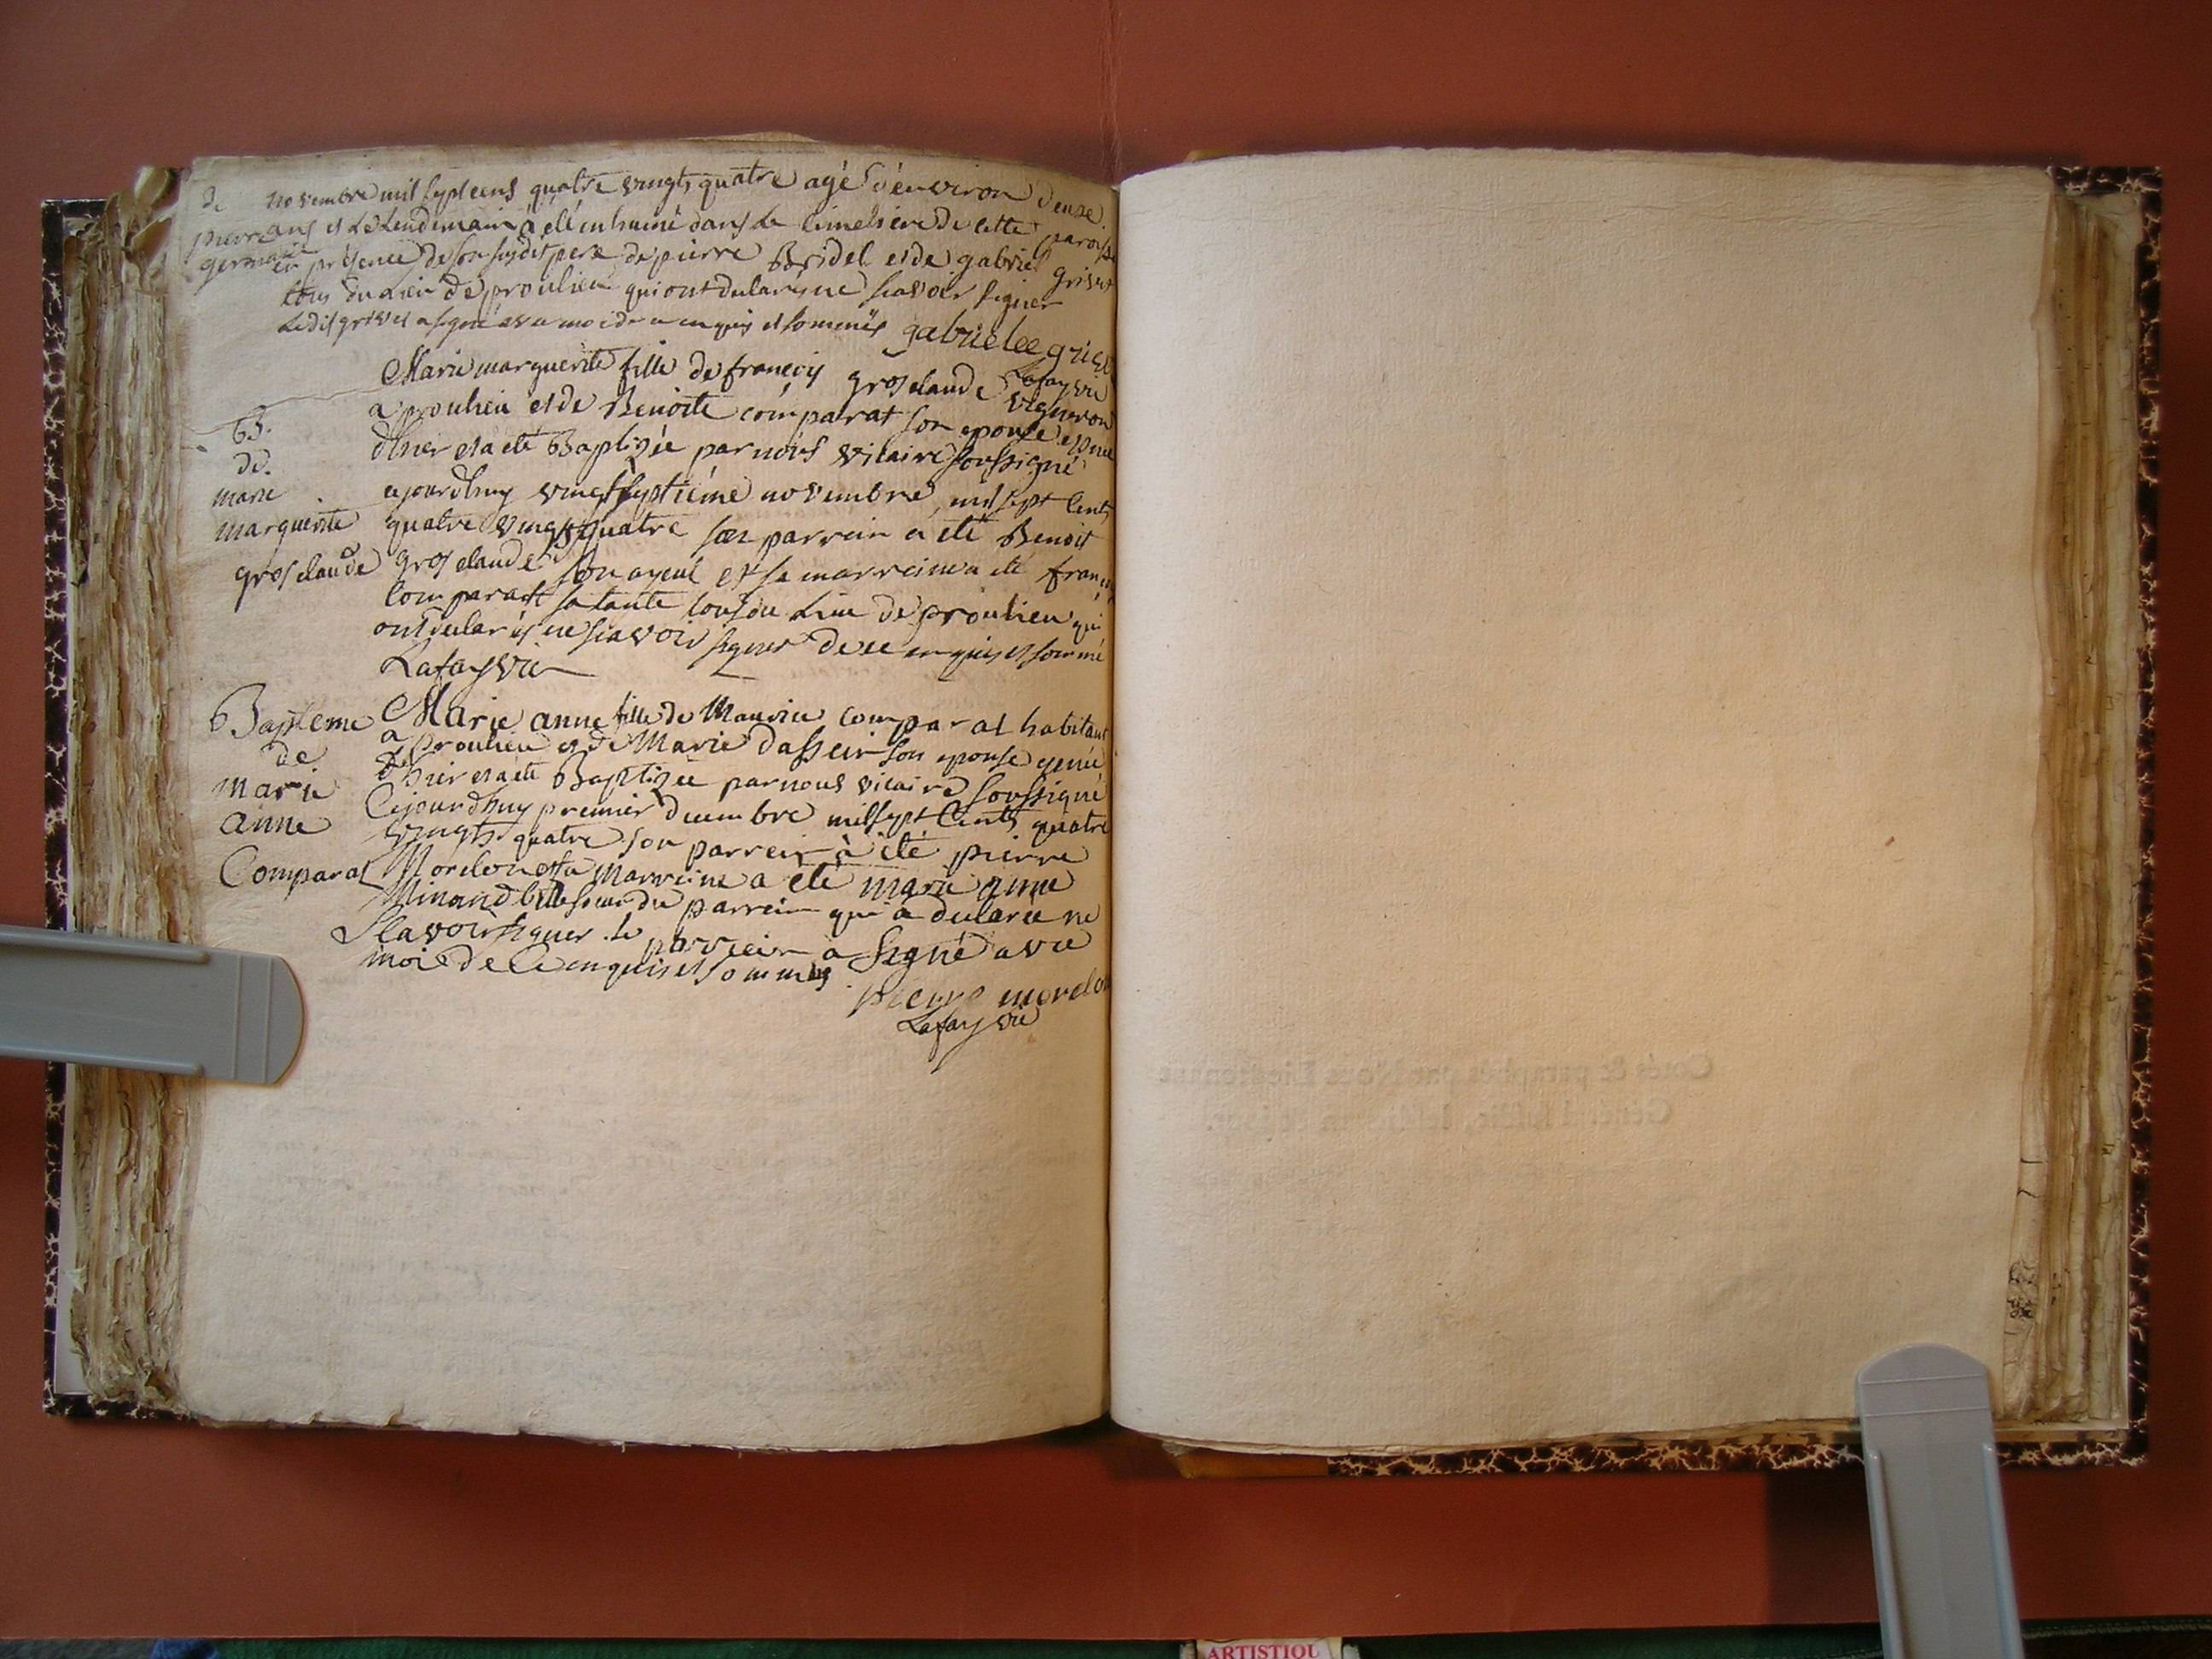 de novembre mil sept cens quatre vingts quatre agé d'environ deuze
pierre ans et Le Lendemain a eté inhumé dans Le cimetiere de cette paroisse
germain en présence de son susdit pere de pierre Bridel et de gabriel grivet
tous du Lieu de proulieu qui ont declarés ne sçavoir signer
Ledit grivet a signé avec moi de ce enquis et sommés gabriel grivet
Lafay vic
Marie marguerite fille de françois gros claude vigneron
a proulieu et de Benoite comparat son epouse est née
d'hier et a eté Baptizée par nous vicaire soussigné
cejourdhuy vingt septiéme novembre mil sept Cents
quatre vingts quatre son parrein a eté Benoit
gros claude son ayeul et sa marreine a eté
comparat sa tante tous du Lieu de proulieu qui
ont declarés ne sçavoir signer de ce enquis et sommé
Lafay vic
B.
de
marie
marguerite
gros claude
Marie anne fille de Maurice comparat habitant
a proulieu et de Marie dassein son epouse
d'hier et a eté Baptizée par nous vicaire soussigné
Cejourdhuy premier decembre mil sept Cents quatre
vingts quatre son parrein à eté pierre
Morelon et sa Marreine a eté marie anne
Minand belle soeur du parrein qui a declarée ne
Sçavoir signer. le parrein a Signé avec
moi de ce enquis et sommés.
pierre morelon
Lafay vic
Bapteme
de
marie
anne
Comparat
Cotés & paraphés par Nous Lieutenant
ARTISTIQU